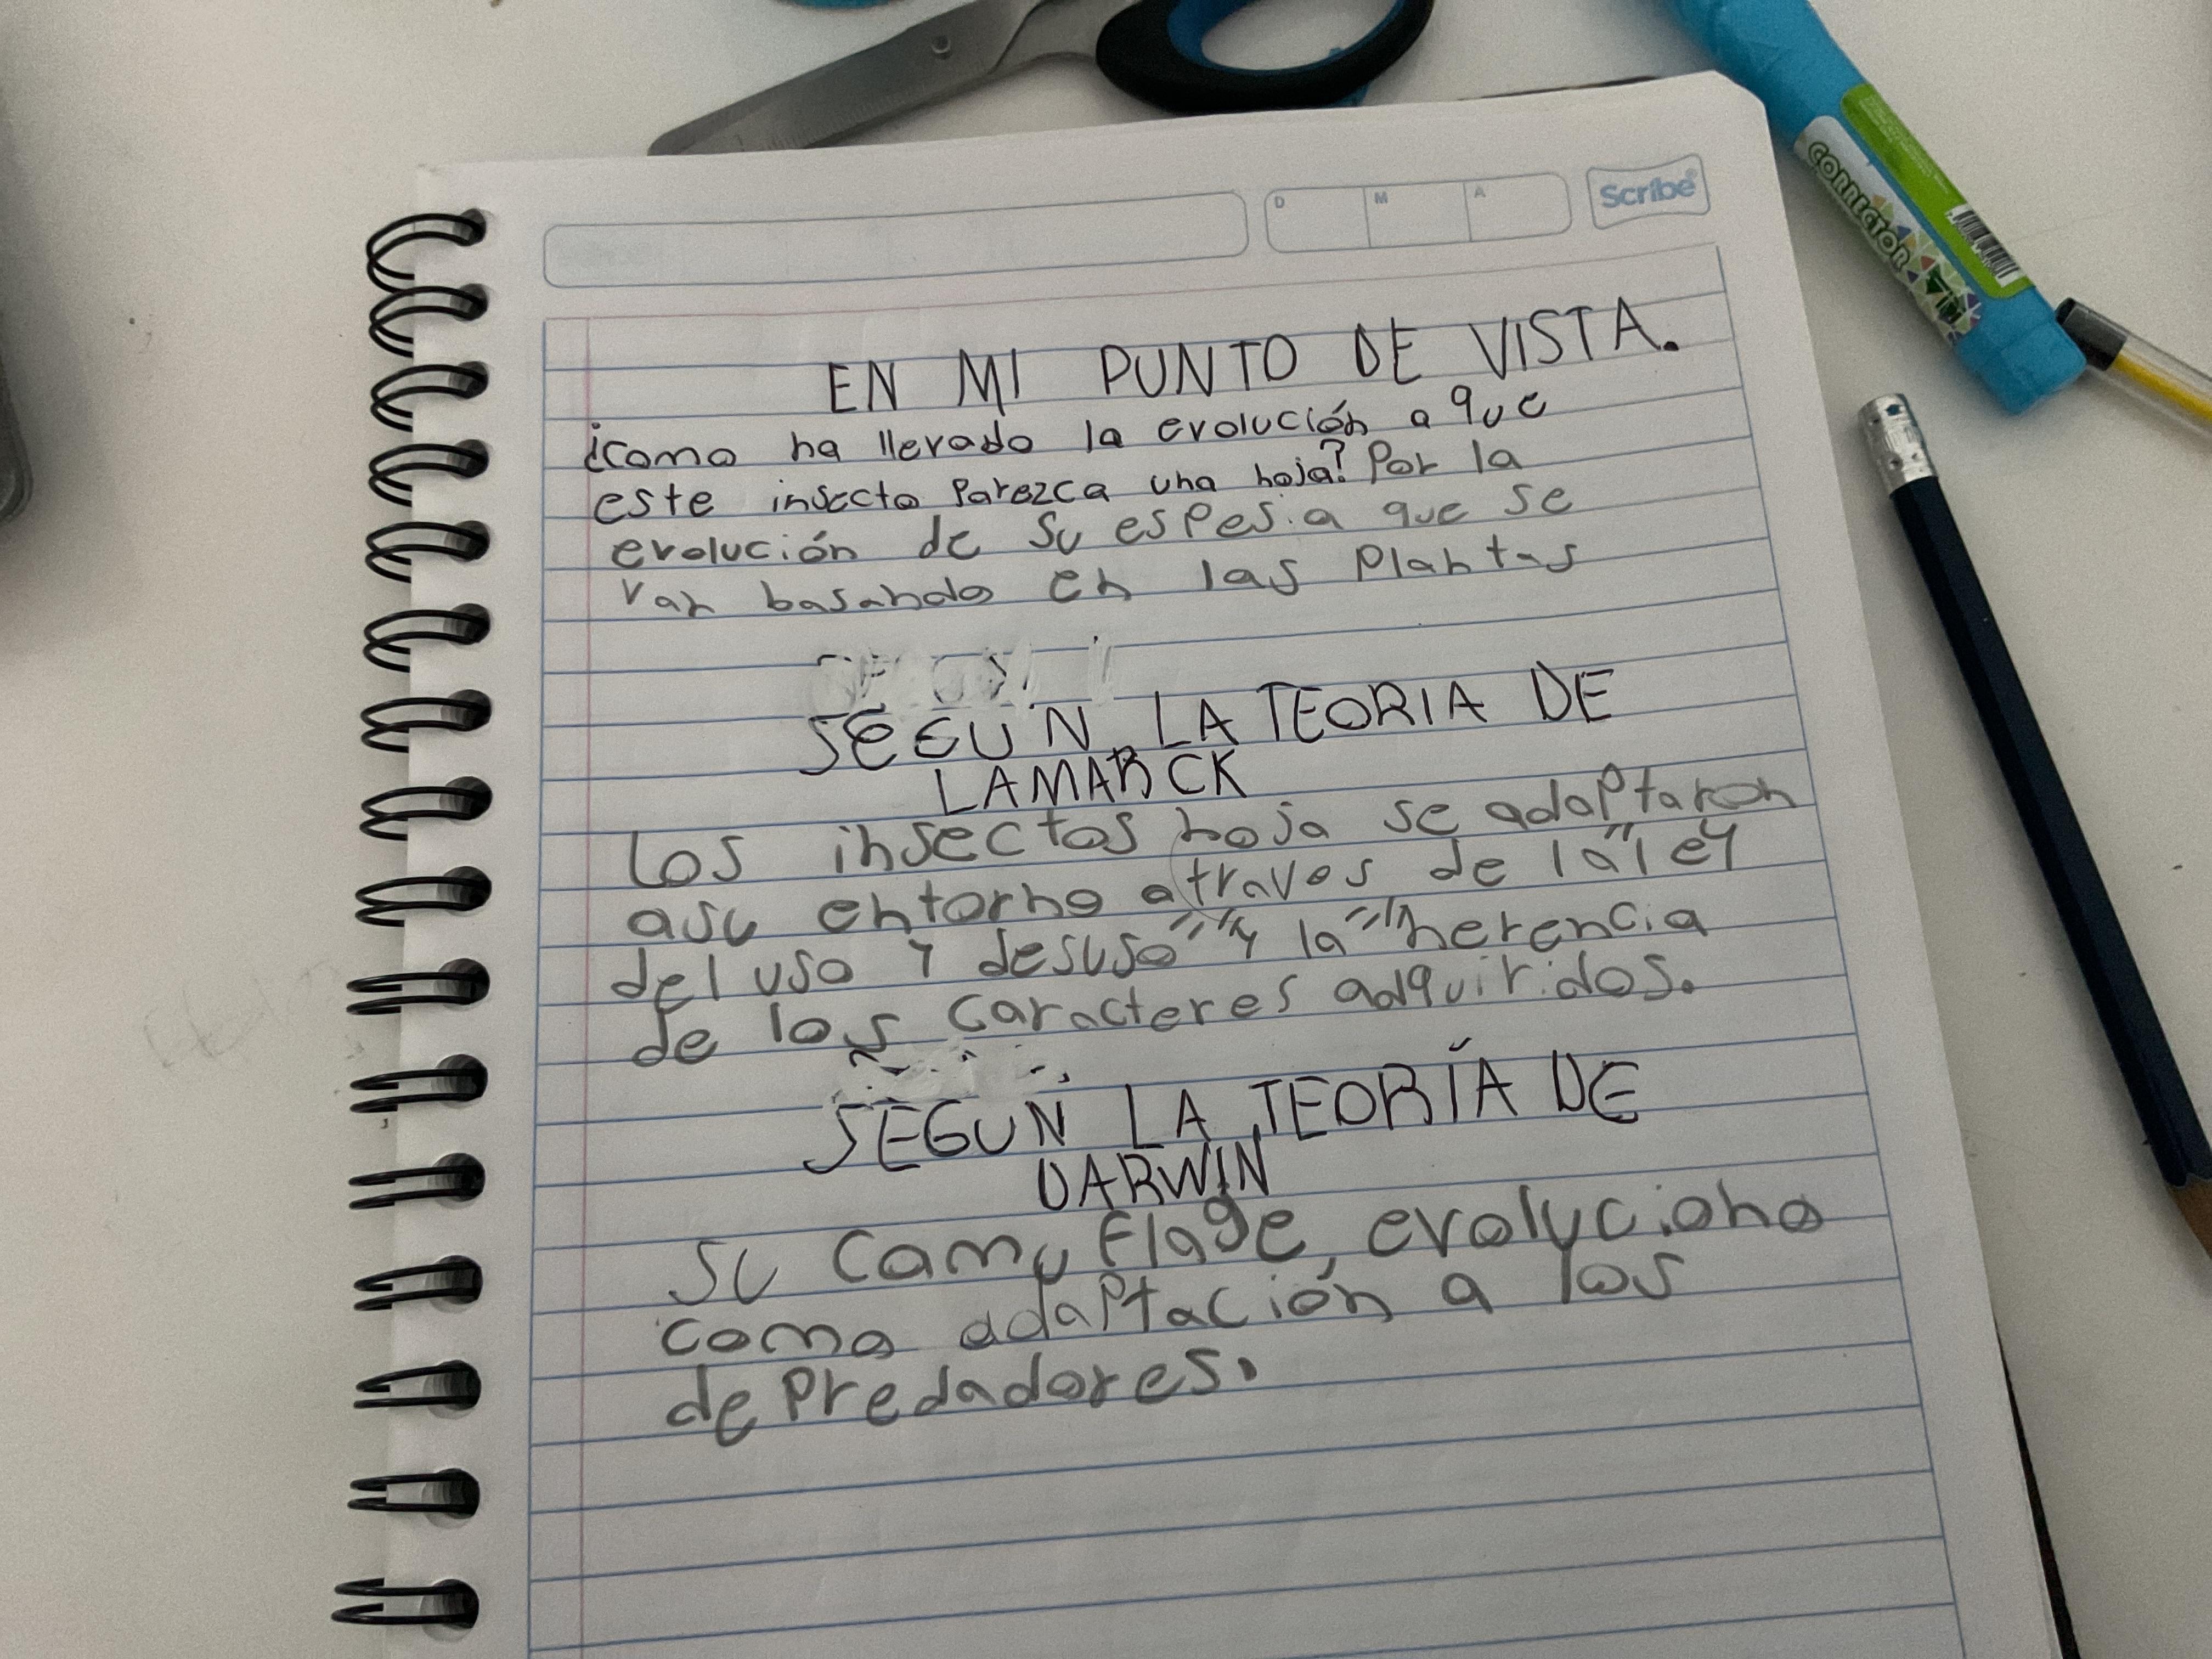 D M A
Scribe
EN MI PUNTO DE VISTA.
¿Como ha llevado la evolución a que
este insecto Parezca una hoja? Por la
evolución de su espesia que se
van basando en las Plantas
SEGÚN LA TEORIA DE
LAMARCK
Los insectos hoja se adaptaron
asu entorno atraves de la "ley
del uso y desuso" y la "herencia
de los caracteres adquiridos.
SEGUN LA TEORÍA DE
DARWIN
su camuflage, evoluciono
como adaptación a los
depredadores.
CORRECTOR